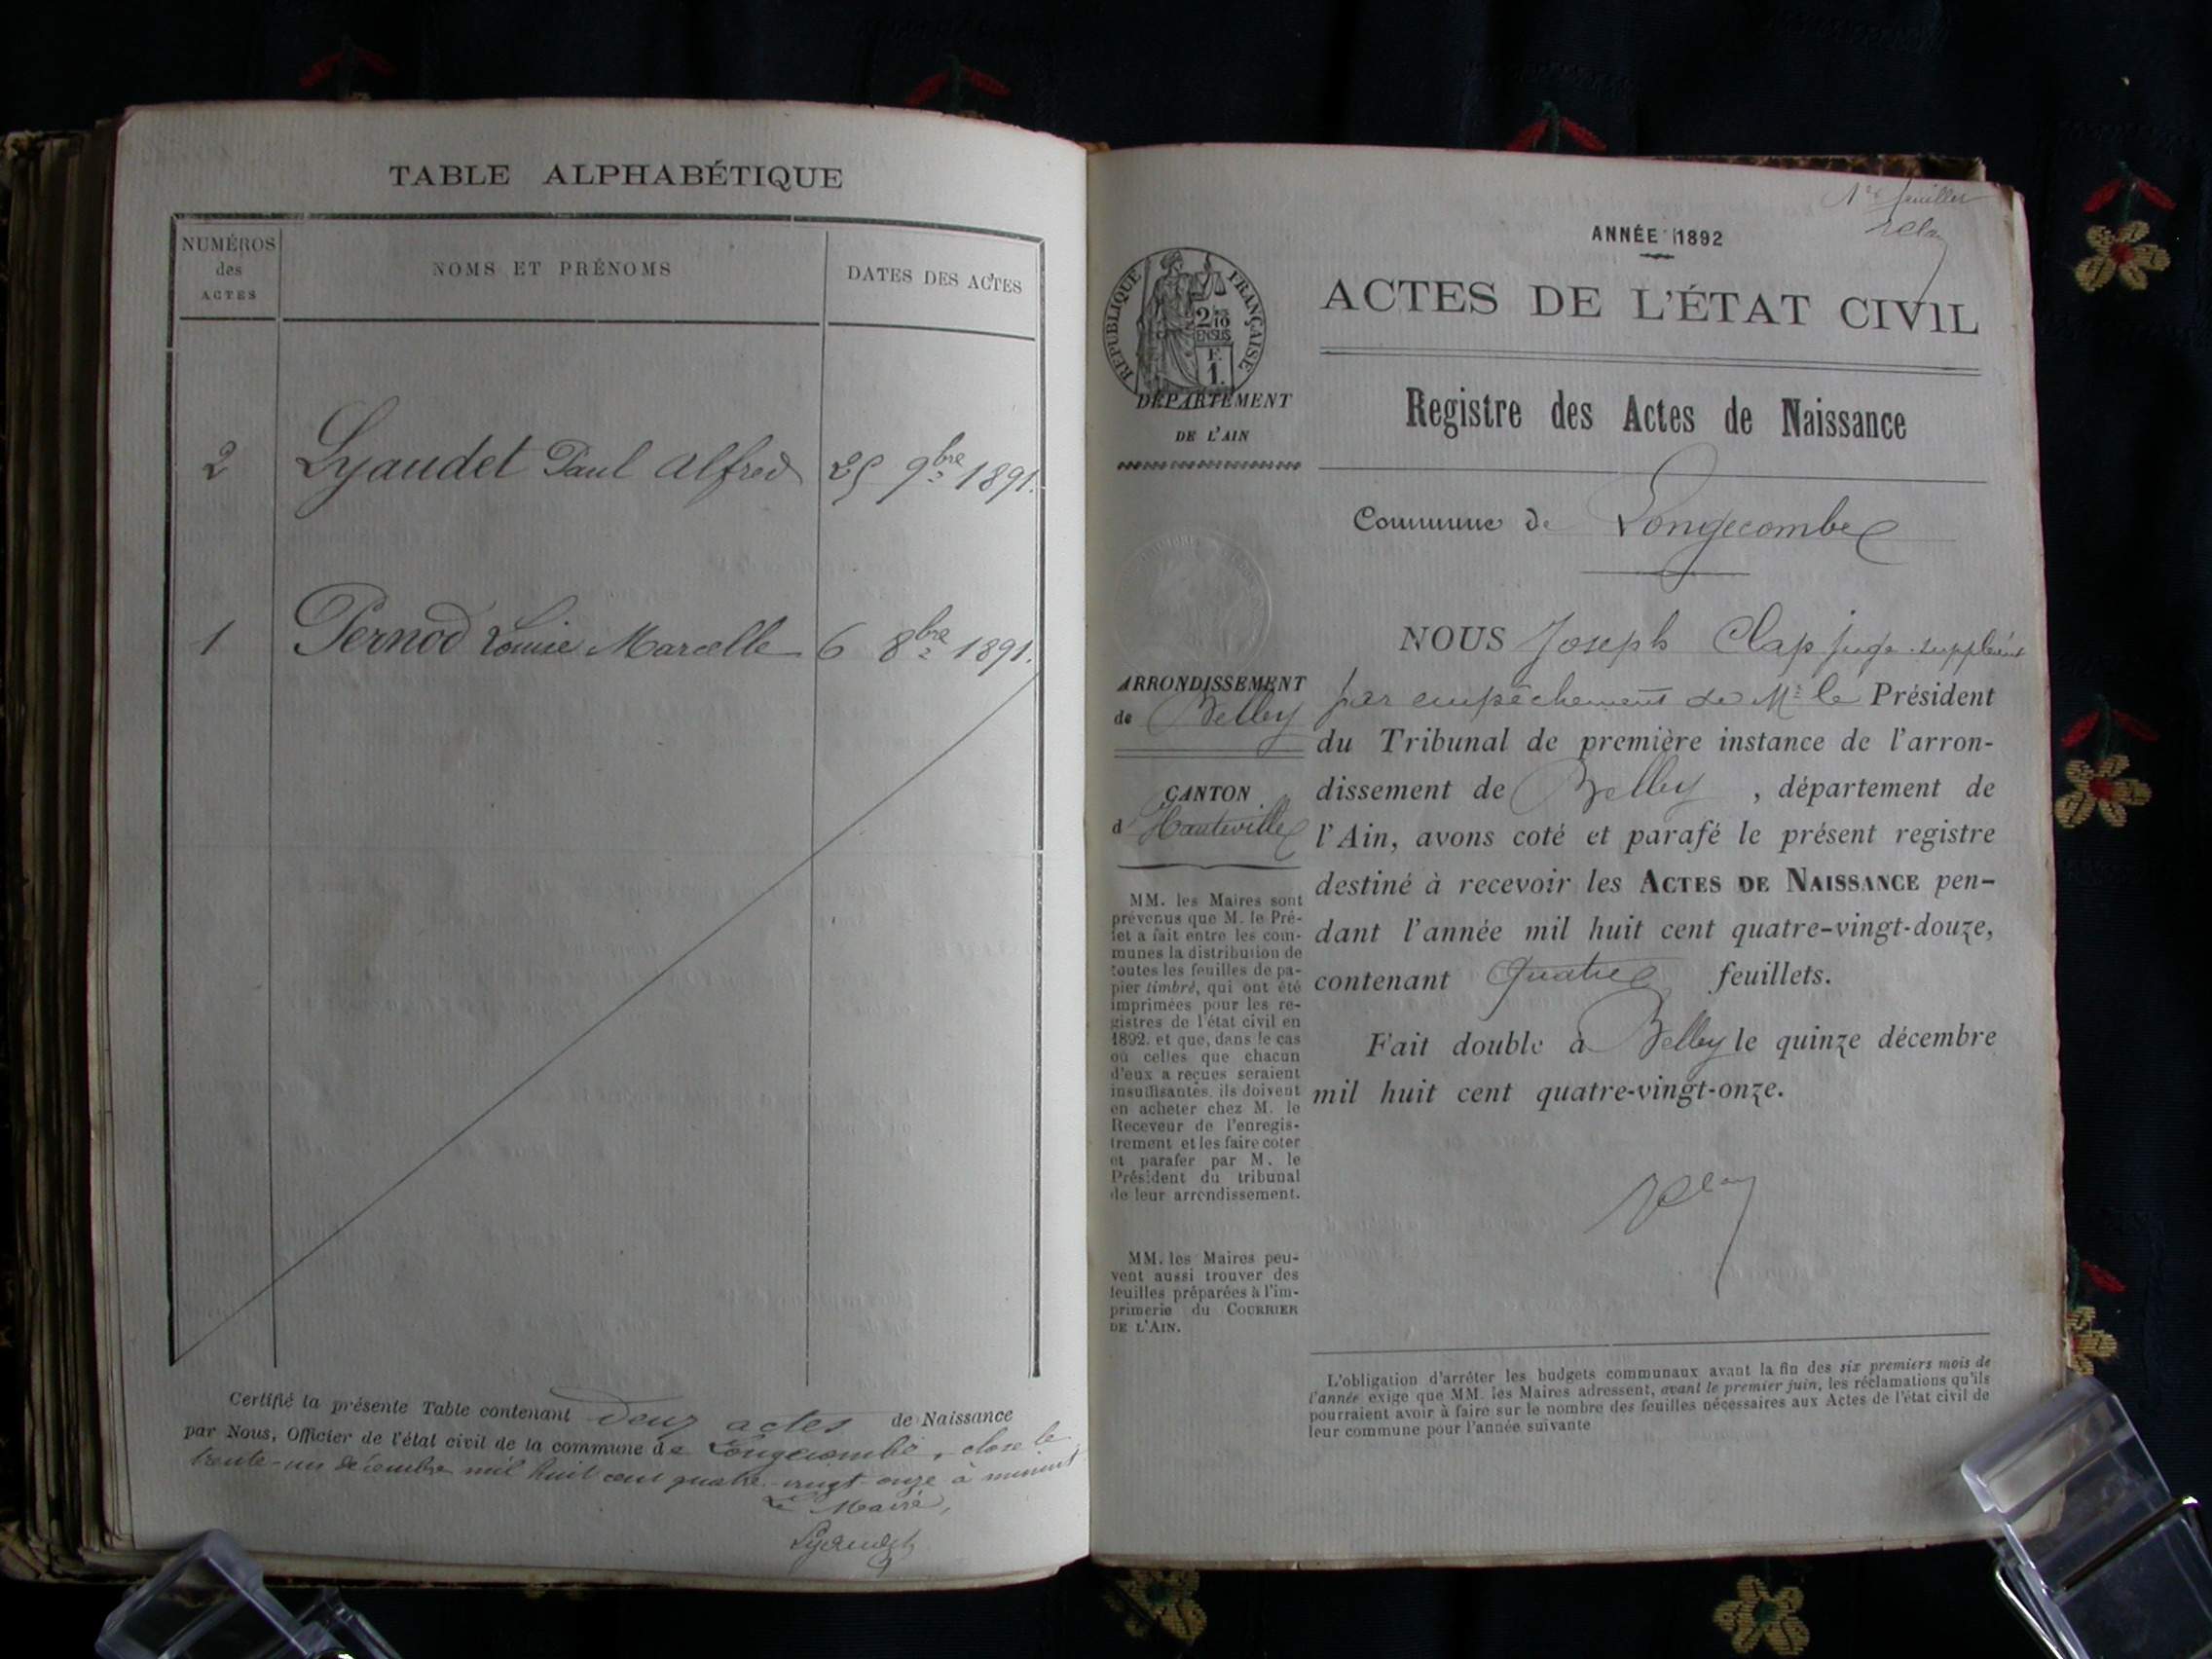 TABLE ALPHABÉTIQUE
NUMÉROS
des
ACTES
NOMS ET PRÉNOMS
DATES DES ACTES
2 Lyaudet Paul Alfred 25 9bre 1891.
1 Pernod Louise Marcelle 6 8bre 1891.
Certifié la présente Table contenant deux actes de Naissance
par Nous, Officier de l'état civil de la commune de Longecombe, close le
trente-un décembre mil huit cent quatre-vingt-onze à minuit
Le Maire,
Lyaudet
1er feuillet
ANNÉE 1892
ACTES DE L'ÉTAT CIVIL
Registre des Actes de Naissance
Commune de Longecombe
RÉPUBLIQUE FRANÇAISE
2/10
EN SUS
F.
1.
DÉPARTEMENT
DE L'AIN
ARRONDISSEMENT
de Belley
CANTON
d'Hauteville
MM. les Maires sont
prévenus que M. le Pré-
fet a fait entre les com-
munes la distribution de
toutes les feuilles de pa-
pier timbré, qui ont été
imprimées pour les re-
gistres de l'état civil en
1892, et que, dans le cas
où celles que chacun
d'eux a reçues seraient
insuffisantes, ils doivent
en acheter chez M. le
Receveur de l'enregis-
trement et les faire coter
et parafer par M. le
Président du tribunal
de leur arrondissement.
MM. les Maires peu-
vent aussi trouver des
feuilles préparées à l'im-
primerie du COURRIER
DE L'AIN.
NOUS Joseph Clap juge suppléant
par empêchement de Mr le Président
du Tribunal de première instance de l'arron-
dissement de Belley, département de
l'Ain, avons coté et parafé le présent registre
destiné à recevoir les ACTES DE NAISSANCE pen-
dant l'année mil huit cent quatre-vingt-douze,
contenant Quatre feuillets.
Fait double à Belley le quinze décembre
mil huit cent quatre-vingt-onze.
L'obligation d'arrêter les budgets communaux avant la fin des six premiers mois de
l'année exige que MM. les Maires adressent, avant le premier juin, les réclamations qu'ils
pourraient avoir à faire sur le nombre des feuilles nécessaires aux Actes de l'état civil de
leur commune pour l'année suivante